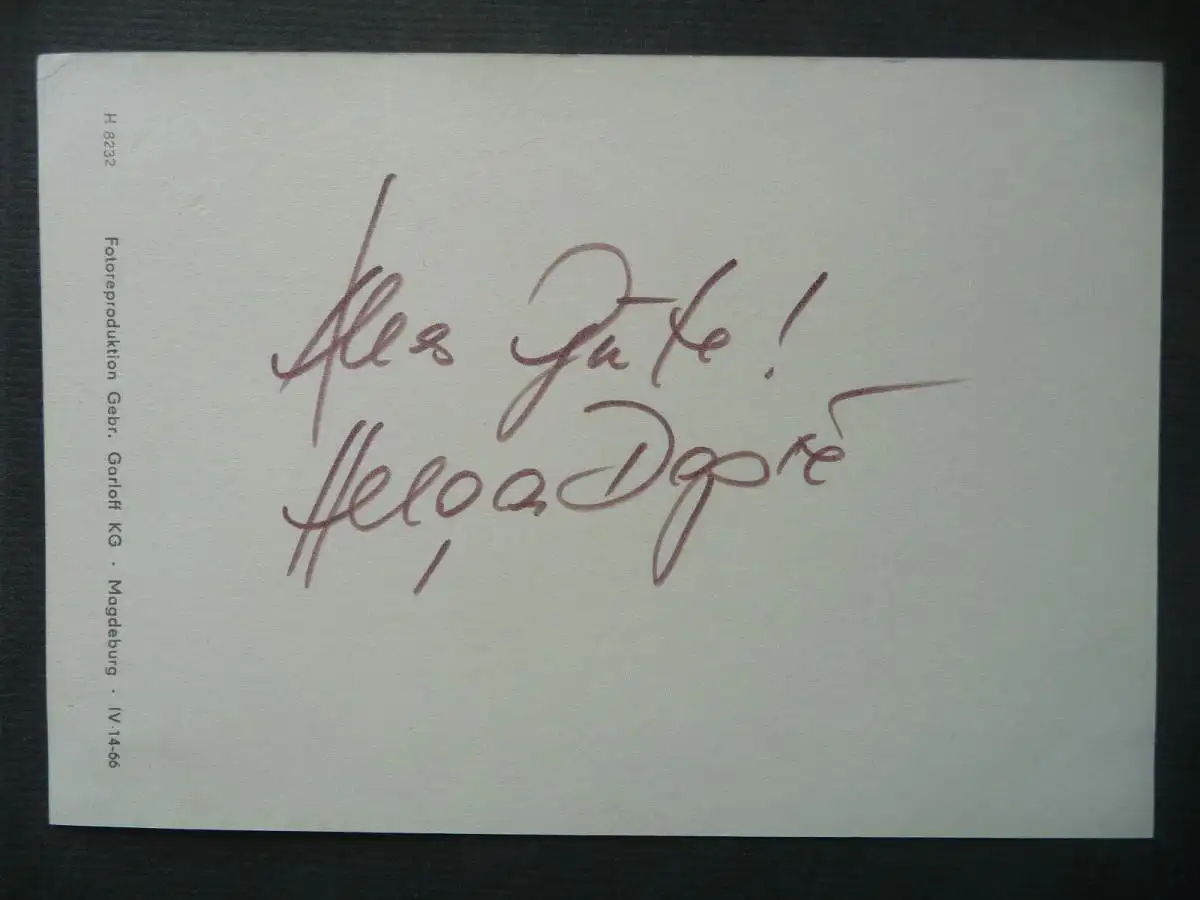 H 8232 Fotoreproduktion Gebr. Garloff KG · Magdeburg · IV-14-66
Alles Gute!
Helga